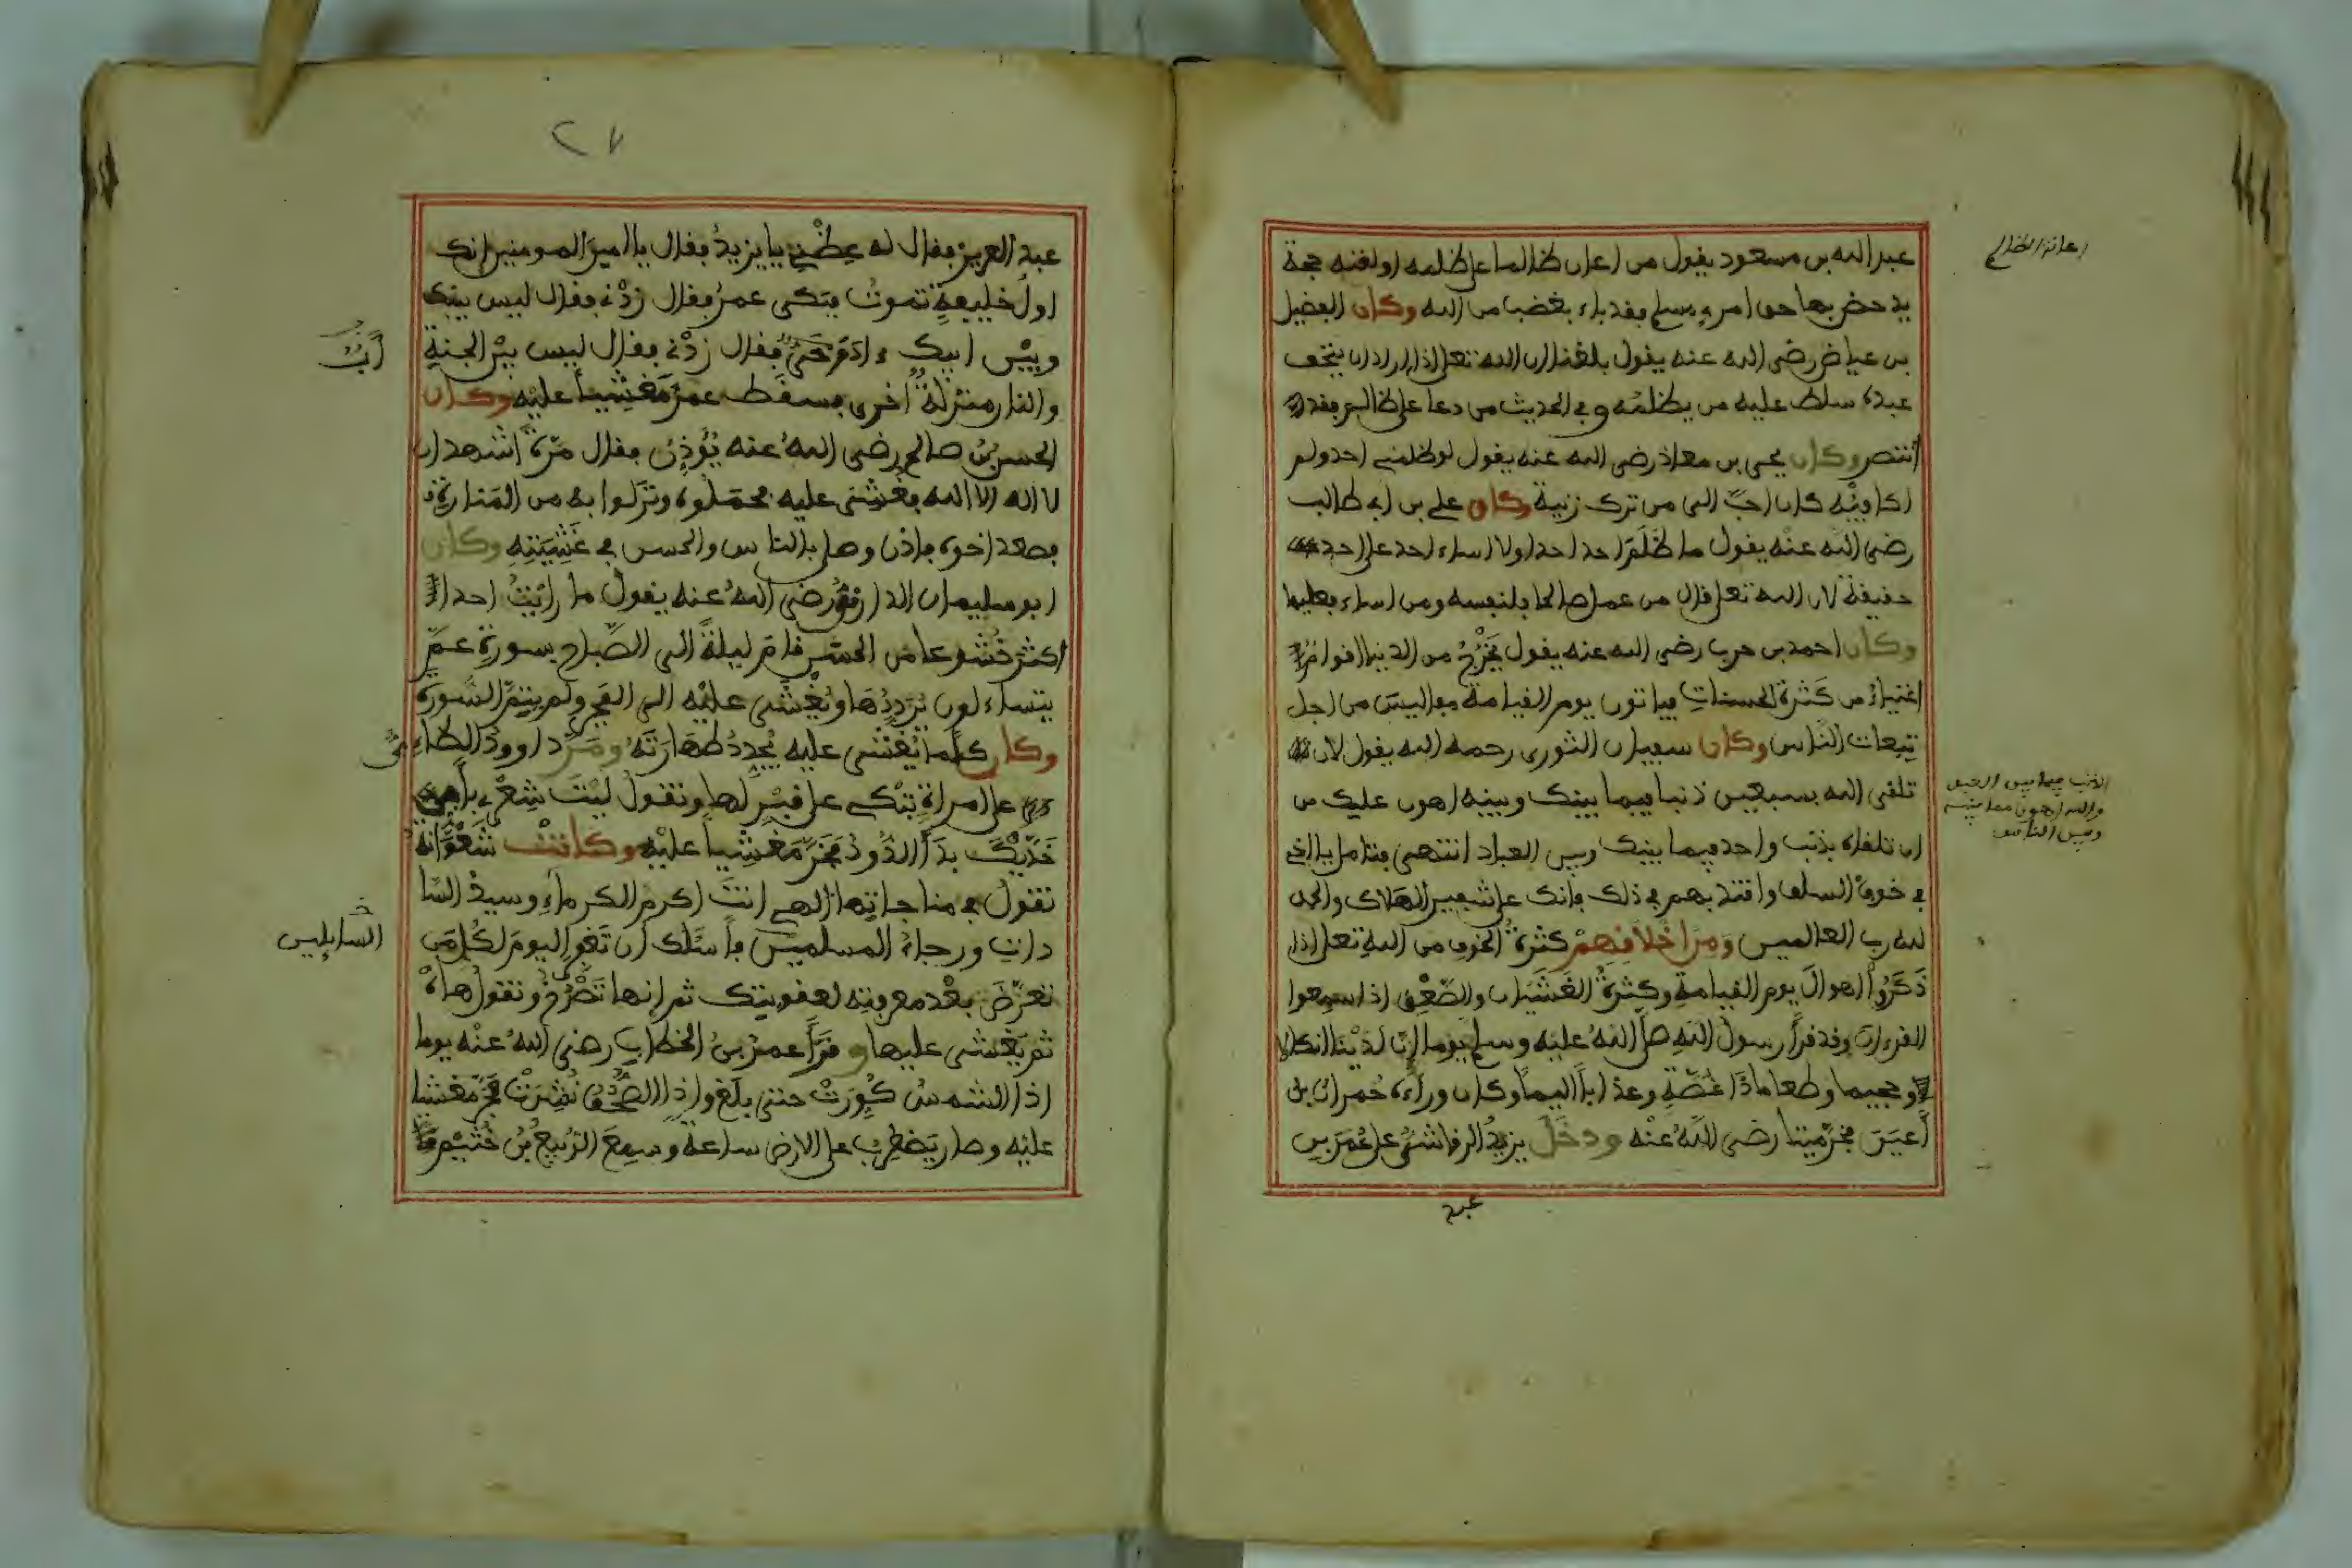 اعانة الظالم
عبد الله بن مسعود يقول من اعان ظالما على ظلمه او لقنه حجة
يدحض بها حق امرء مسلم فقد باء بغضب من الله وكان الفضيل
بن عياض رضي الله عنه يقول بلغنا ان الله تعلى اذا اراد ان يتحف
عبده سلط عليه من يظلمه وفي الحديث من دعا على ظالم فقد
انتصر وكان يحيى بن معاذ رضي الله عنه يقول لو ظلمني احد ولم
اكافيه كان احب الى من ترك زنية وكان علي بن ابي طالب
رضي الله عنه يقول ما ظلم احد احدا ولا اساء احد على احد
حقيقة لان الله تعلى قال من عمل صالحا فلنفسه ومن اساء فعليها
وكان احمد بن حرب رضي الله عنه يقول يخرج من الدنيا اقوام
اغنياء من كثرة الحسنات فياتون يوم القيامة مفاليس من اجل
تبعات الناس وكان سفيان الثورى رحمه الله يقول لان
تلقى الله بسبعين ذنبا فيما بينك وبينه اهون عليك من
ان تلقاه بذنب واحد فيما بينك وبين العباد انتهى فتامل يا اخي
في خوف السلف واقتد بهم في ذلك فانك على شفير الهلاك والحمد
لله رب العالمين ومن اخلافهم كثرة الخوف من الله تعلى اذا
ذكروا اهوال يوم القيامة وكثرة الغشيان والصعق اذا سمعوا
القرءان وقد قرأ رسول الله صلى الله عليه وسلم يوما ان لدينا انكالا
وجحيما وطعاما ذا غصة وعذابا اليما وكان وراءه حمران بن
أعين فخر ميتا رضي الله عنه ودخل يزيد الرقاشى على عمر بن
عبد
الذنب فيما بين العبد
والله اهون مما بينه
وبين الناس
٢٧
عبد العزيز فقال له عظني يا يزيد فقال يا امير المومنين انك
اول خليفة تموت فبكى عمر فقال زدني فقال ليس بينك
وبين ابيك ءادم حي فقال زدني فقال ليس بين الجنة
أب
والنار منزلة اخرى فسقط عمر مغشيا عليه وكان
الحسن بن صالح رضي الله عنه يؤذن فقال مرة اشهد ان
لا اله الا الله فغشي عليه فحملوه ونزلوا به من المنارة
فصعد اخوه فاذن وصلى بالناس والحسن في غشيته وكان
ابو سليمان الدارنى رضي الله عنه يقول ما رايت احدا
اكثر خشوعا من الحسن قام ليلة الى الصباح بسورة عم
يتساءلون يرددها ويغشى عليه الى الفجر ولم يتم السورة
وكان كلما يغشى عليه يجدد طهارته ومر داوود الطاءى
على امراة تبكي على قبر لها وتقول ليت شعري باي
خديك بدأ الدود فخر مغشيا عليه وكانت شعوانة
تقول في مناجاتها الهي انت اكرم الكرماء وسيد السا
دات ورجاء المسلمين فاسئلك ان تغفر اليوم لكل من
السايلين
تعرض بعد معرفته لعقوبتك ثم انها تصرخ وتقول هاه
ثم يغشى عليها وقرأ عمر بن الخطاب رضي الله عنه يوما
اذا الشمس كورت حتى بلغ واذا الصحف نشرت فخر مغشيا
عليه وصار يضطرب على الارض ساعة وسمع الربيع بن خثيم